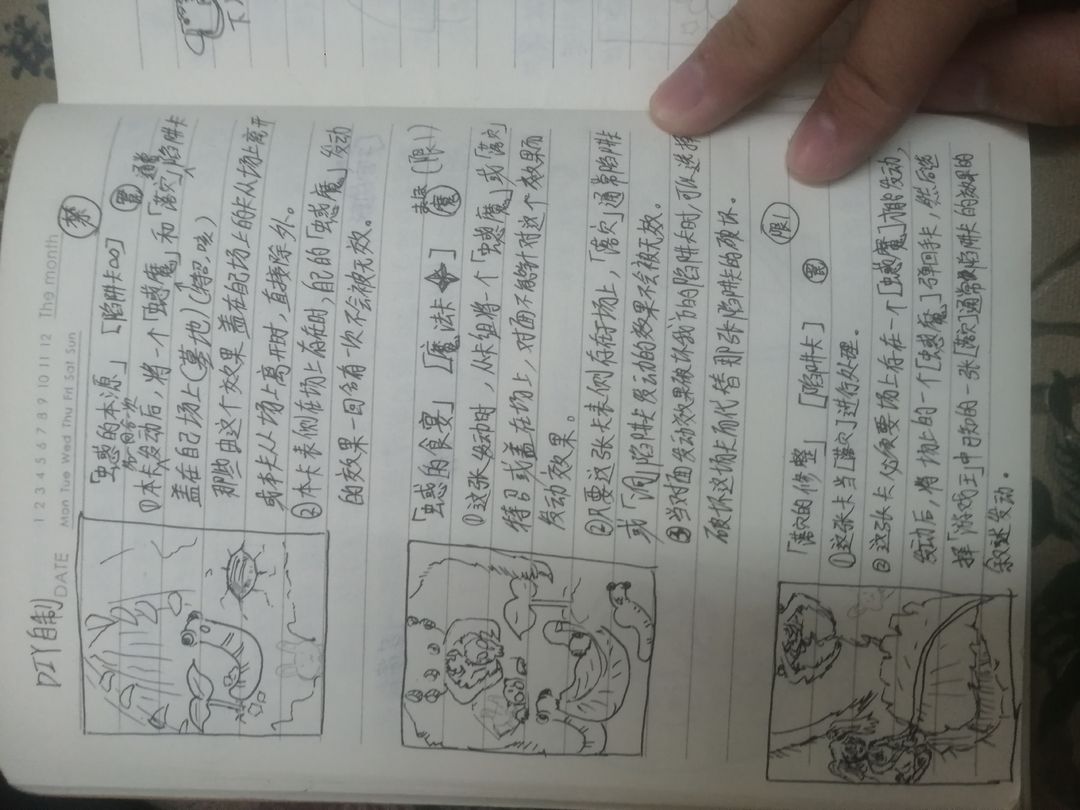 DIY自制
DATE
1 2 3 4 5 6 7 8 9 10 11 12 The month
Mon Tue Wed Thu Fri Sat Sun
禁
「虫惑的本源」 [陷阱卡∞] 罠
一回合一次 通常
①本卡发动后,将一个「虫惑魔」和「落穴」陷阱卡
盖在自己场上(墓地)(特召,咳)
那些由这个效果盖在自己场上的卡从场上离开
或本卡从场上离开时,直接除外。
②本卡表侧在场上存在时,自己的「虫惑魔」发动
的效果一回合有一次不会被无效。
「虫惑的食宴」 [魔法卡] 魔 (限1)
①这张发动时,从卡组将一个「虫惑魔」或「落穴」
特召或盖在场上,对面不能针对这个效果而
发动效果。
②只要这张卡表侧存在于场上,「落穴」通常陷阱卡
或「洞」陷阱卡发动的效果不会被无效。
③当对面发动效果破坏我方的陷阱卡时,可以选择
破坏这场卡而代替那张陷阱卡的破坏。
限1
「落穴的修整」 [陷阱卡] 罠
①这张卡当[落穴]进行处理。
②这张卡必须要场上存在一个[虫惑魔]才能发动,
发动后,将场上的一个[虫惑魔]弹回手卡,然后选
择「游戏王」中已知的一张[落穴]通常陷阱卡的效果的
叙述发动。
下